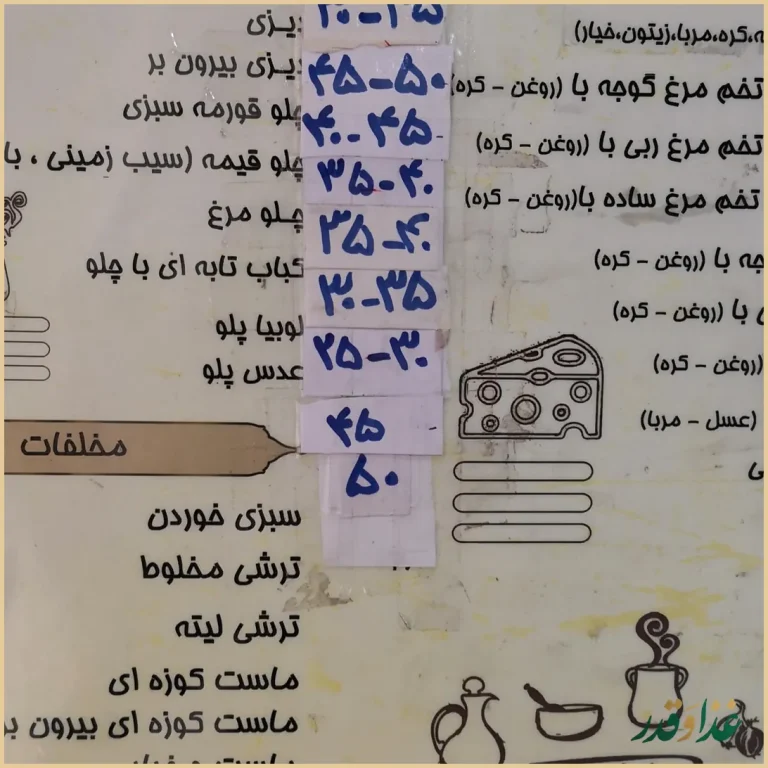 کره،مربا،زیتون،خیار)
تخم مرغ گوجه با (روغن - کره)
تخم مرغ ربی با (روغن - کره)
تخم مرغ ساده با(روغن - کره)
با (روغن - کره)
با (روغن - کره)
(روغن - کره)
(عسل - مربا)
۴۵-۵۰
۴۰-۴۵
۳۵-۴۰
۳۵-۴۰
۳۰-۳۵
۲۵-۳۰
۴۵
۵۰
دیزی
دیزی بیرون بر
چلو قورمه سبزی
چلو قیمه (سیب زمینی ، با
چلو مرغ
کباب تابه ای با چلو
لوبیا پلو
عدس پلو
مخلفات
سبزی خوردن
ترشی مخلوط
ترشی لیته
ماست کوزه ای
ماست کوزه ای بیرون بر
غذا و قدر